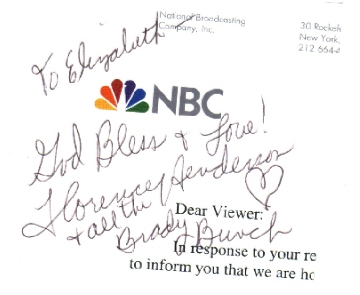 National Broadcasting
Company, Inc.
30 Rockef
New York,
212 664-4
To Elizabeth
NBC
God Bless & Love!
Florence Henderson
& all the
Brady Bunch
Dear Viewer:
In response to your re
to inform you that we are ho